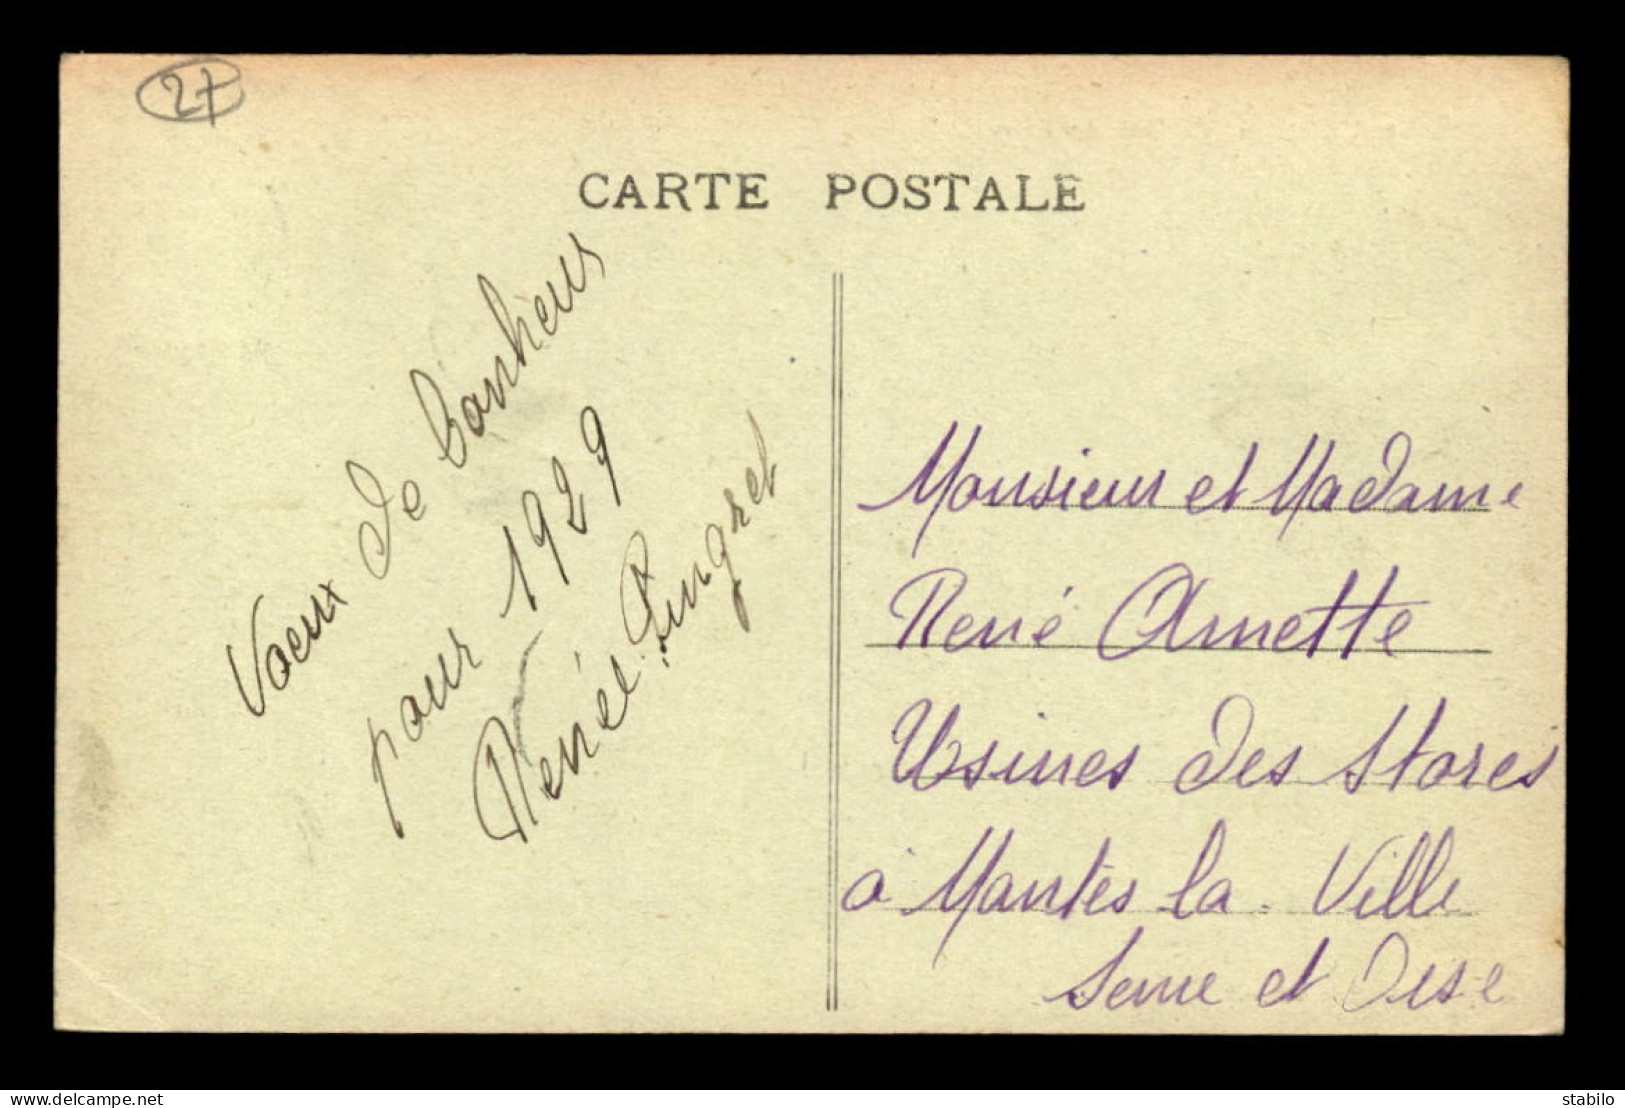 27
CARTE POSTALE
Vœux de bonheur
pour 1929
Renée Pingret
Monsieur et Madame
René Amette
Usines des Stores
à Mantes la Ville
Seine et Oise
https://www.delcampe.net
stabilo